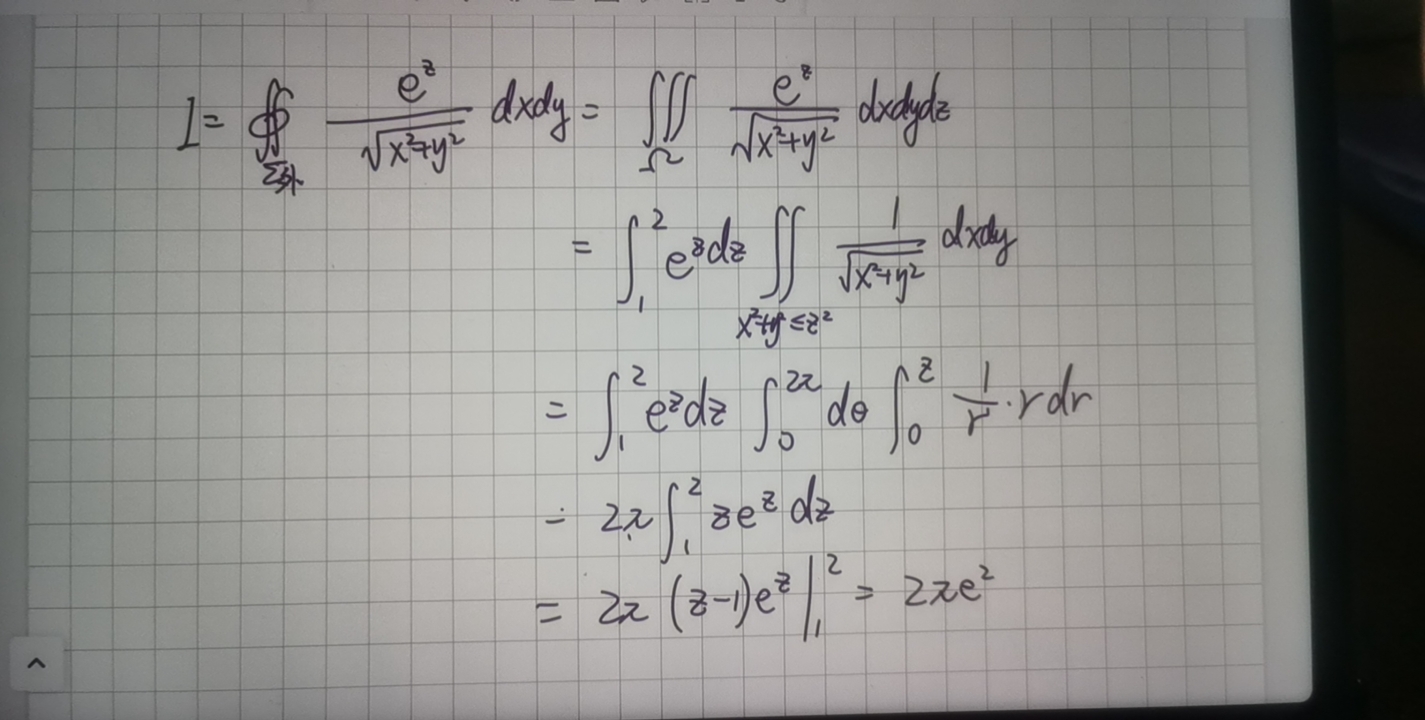 I = ∯_{Σ外} e^z/√(x²+y²) dxdy = ∭_Ω e^z/√(x²+y²) dxdydz
= ∫_1^2 e^z dz ∬_{x²+y²≤z²} 1/√(x²+y²) dxdy
= ∫_1^2 e^z dz ∫_0^{2π} dθ ∫_0^z 1/r · r dr
= 2π ∫_1^2 z e^z dz
= 2π (z-1)e^z |_1^2 = 2πe²